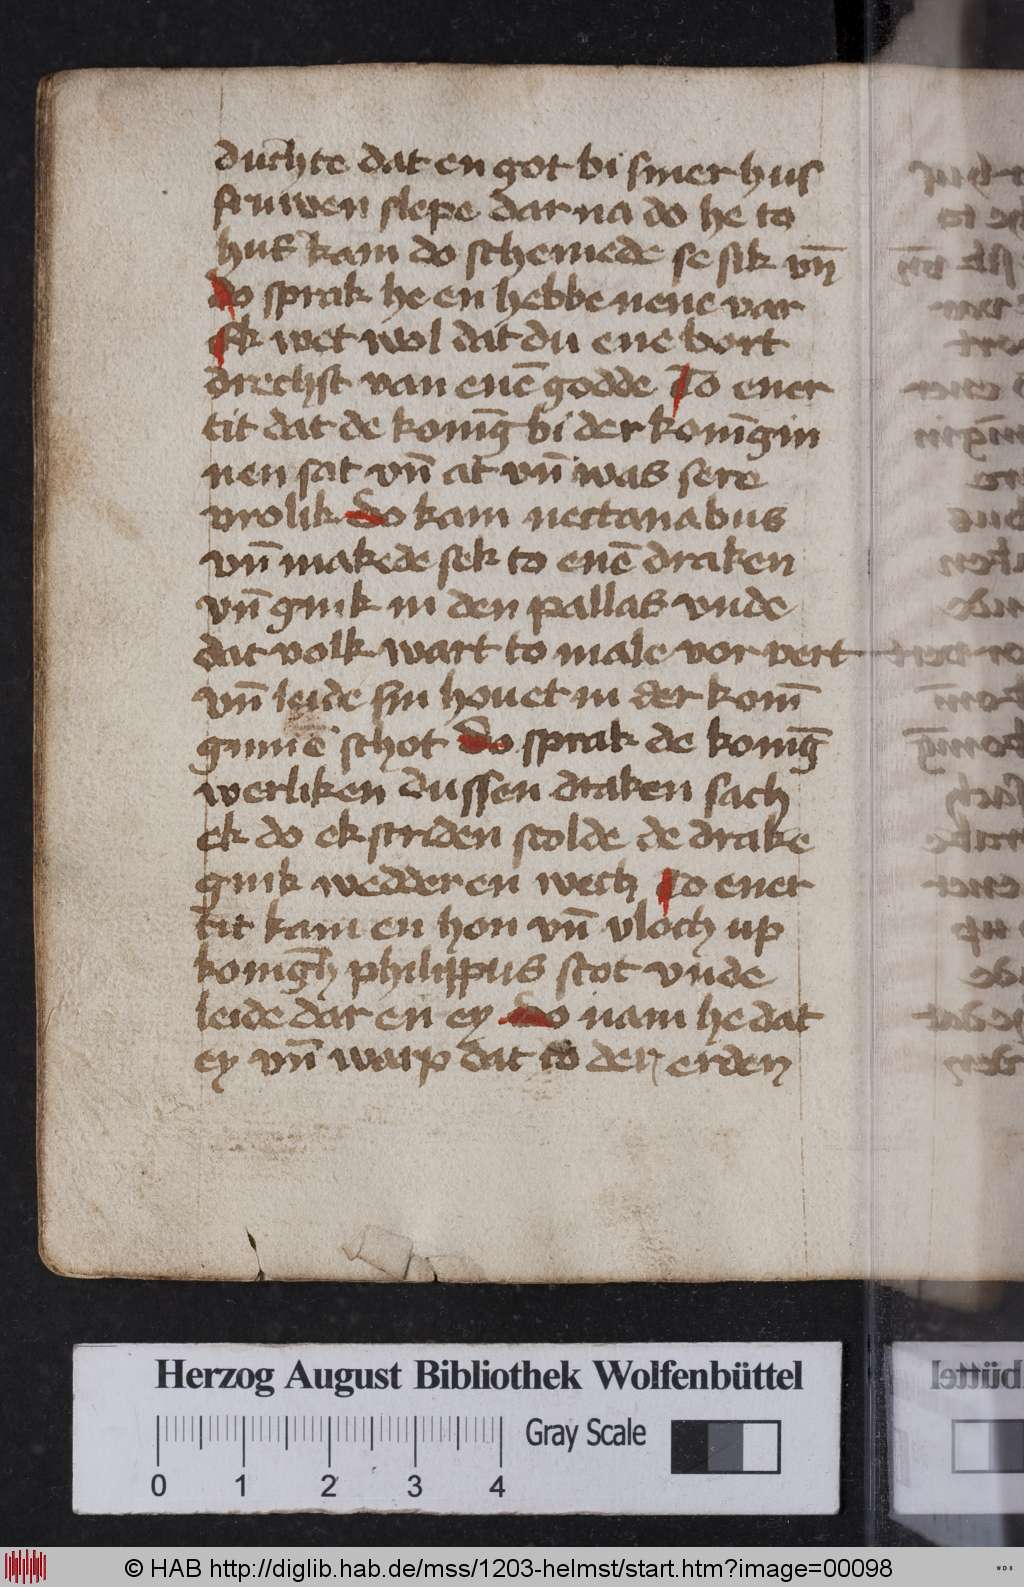 duchte dat en got bi siner hus
fruwen slepe dar na do he to
huß kam do schemede se sik vn̄
do sprak he en hebbe nene var
Ik wet wol dat du ene bort
drechst van enē godde To ener
tit dat de konīg bi der konīgin
nen sat vn̄ at vn̄ was sere
vrolik do kam nectanabus
vn̄ makede sek to enē draken
vn̄ gink in den pallas vnde
dat volk wart to male vor vert
vn̄ leide sin houet in der konī
ginnē schot do sprak de konīg
werliken dussen draken sach
ek do ek striden scolde de drake
gink wedder en wech To ener
tit kam en hon vn̄ vloch up
konīgh philippus scot vnde
leide dar en ey do nam he dat
ey vn̄ warp dat to der erden
Herzog August Bibliothek Wolfenbüttel
Gray Scale
0 1 2 3 4
© HAB http://diglib.hab.de/mss/1203-helmst/start.htm?image=00098